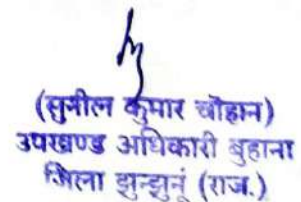 (सुनील कुमार चौहान)
उपखण्ड अधिकारी बुहाना
जिला झुन्झुनूं (राज.)